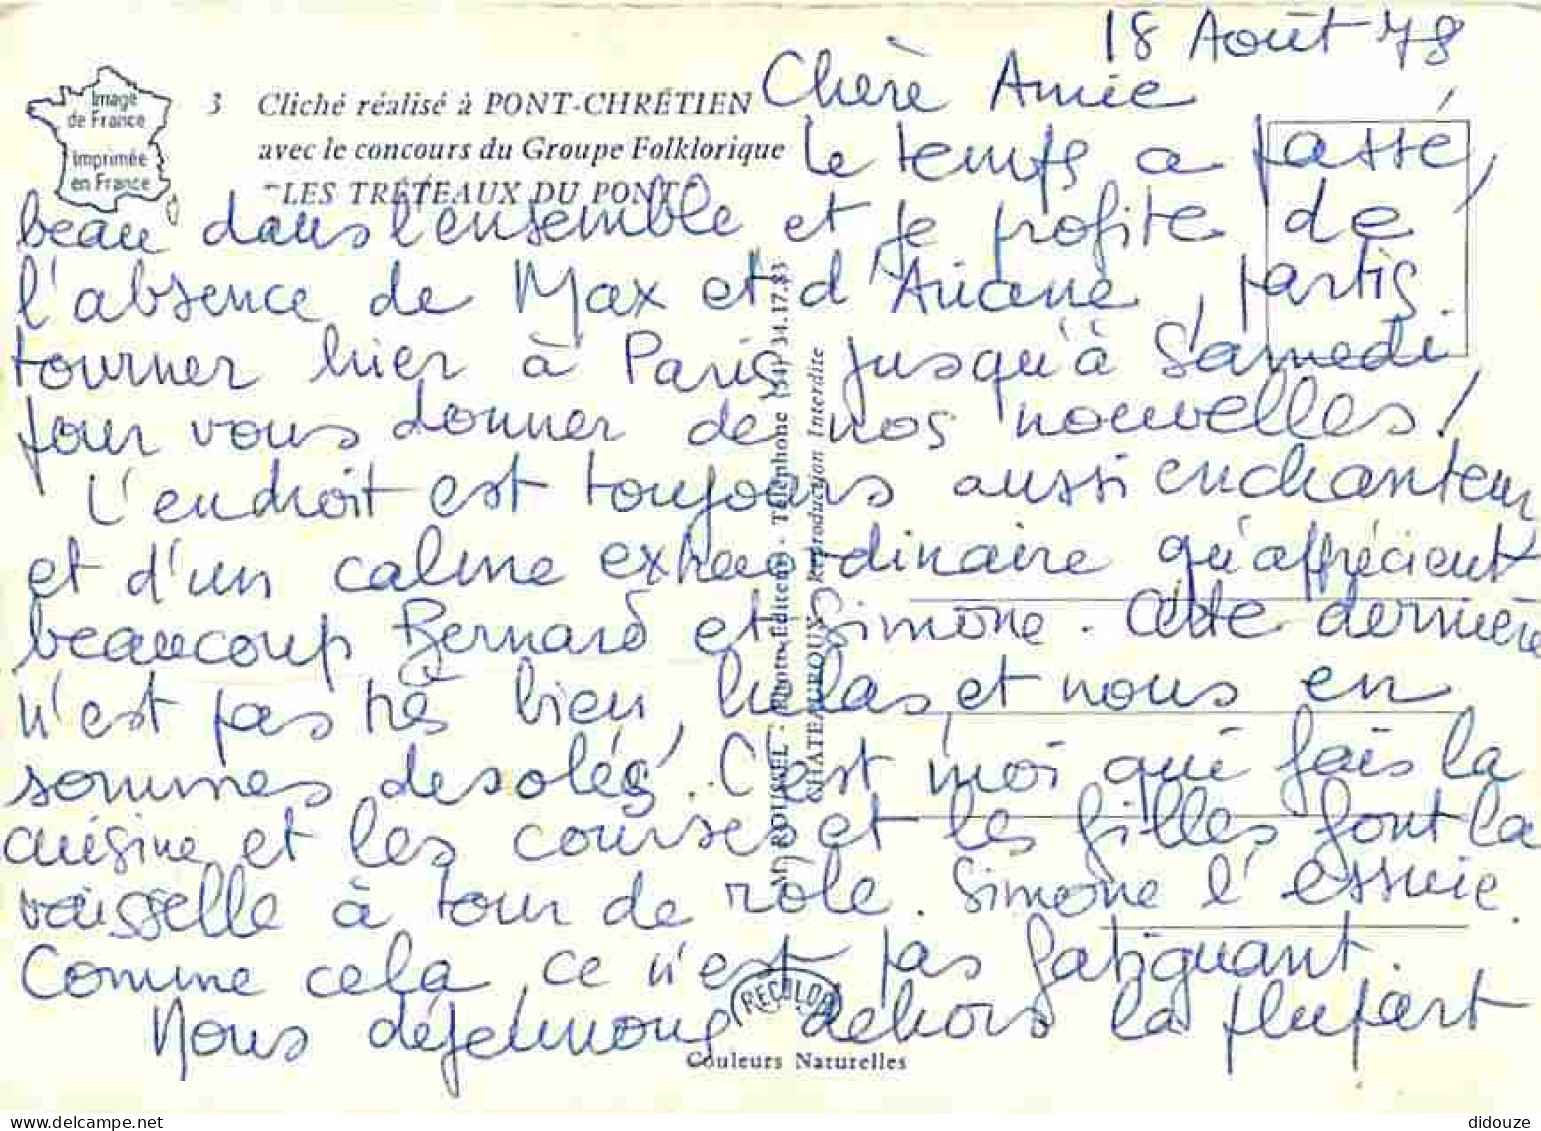 18 Août 78
Chère Amie
Image
de France
Imprimée
en France
3 Cliché réalisé à PONT-CHRÉTIEN
avec le concours du Groupe Folklorique
"LES TRÉTEAUX DU PONT"
le temps a passé,
beau dans l'ensemble et je profite de
l'absence de Max et d'Ariane, partis
tourner hier à Paris jusqu'à Samedi
pour vous donner de nos nouvelles!
L'endroit est toujours aussi enchanteur
et d'un calme extraordinaire qu'apprécient
beaucoup Bernard et Simone. Cette dernière
n'est pas très bien, hélas, et nous en
sommes desolés. C'est moi qui fais la
cuisine et les courses et les filles font la
vaisselle à tour de rôle. Simone l'essuie.
Comme cela, ce n'est pas fatiguant.
Nous déjeunons dehors la plupart
Photo-Éditeur - Téléphone (54) 34.17.33
CHATEAUROUX - Reproduction Interdite
RECOLOR
Couleurs Naturelles
didouze